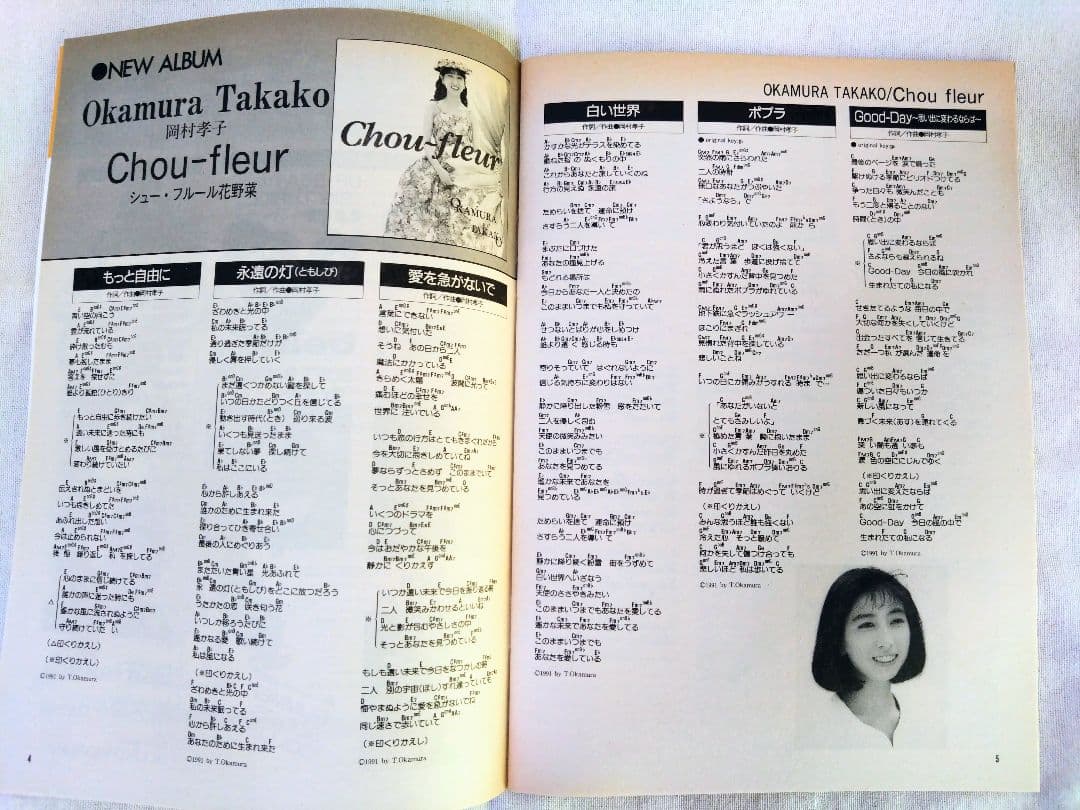 ●NEW ALBUM
Okamura Takako
岡村孝子
Chou-fleur
シュー・フルール花野菜
Chou-fleur
OKAMURA
TAKAKO
もっと自由に
作詞/作曲●岡村孝子
(△印くりかえし)
(※印くりかえし)
©1991 by T.Okamura
永遠の灯(ともしび)
作詞/作曲●岡村孝子
(※印くりかえし)
©1991 by T.Okamura
愛を急がないで
作詞/作曲●岡村孝子
(※印くりかえし)
©1991 by T.Okamura
4
OKAMURA TAKAKO/Chou fleur
白い世界
作詞/作曲●岡村孝子
©1991 by T.Okamura
ポプラ
作詞/作曲●岡村孝子
(※印くりかえし)
©1991 by T.Okamura
Good-Day〜思い出に変わるならば〜
作詞/作曲●岡村孝子
(※印くりかえし)
©1991 by T.Okamura
5